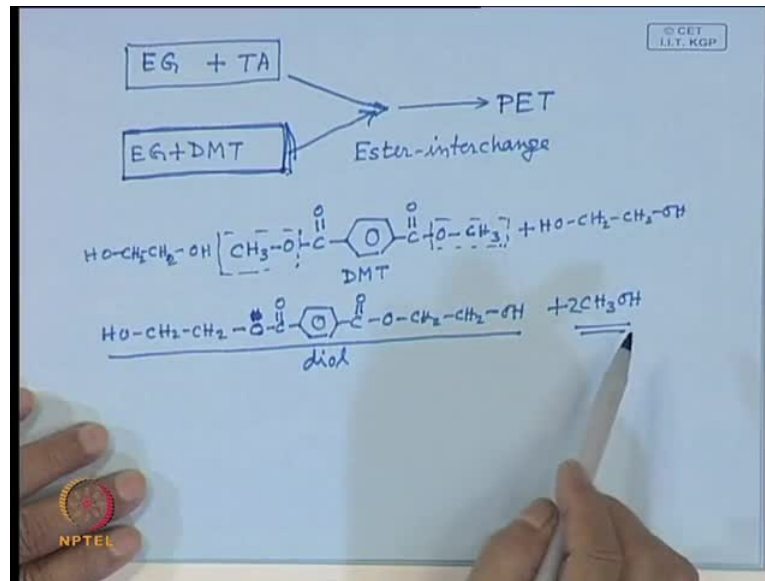 © CET
I.I.T. KGP
EG + TA
→ PET
EG+DMT
Ester-interchange
HO-CH2CH2-OH CH3-O-C(=O)-⌬-C(=O)-O-CH3 + HO-CH2-CH2-OH
DMT
HO-CH2-CH2-O-C(=O)-⌬-C(=O)-O-CH2-CH2-OH +2CH3OH
diol
NPTEL